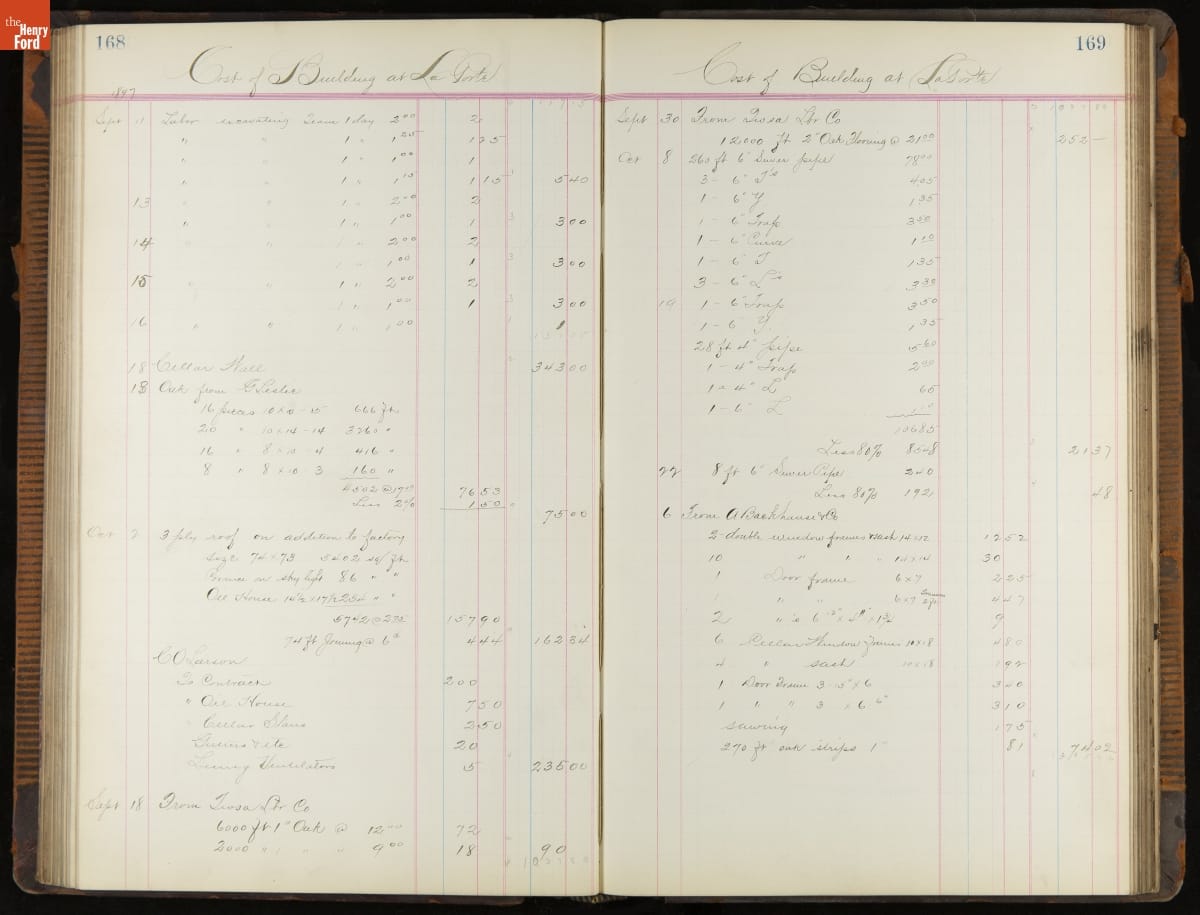 the Henry Ford
168
Cost of Building at La Porte
1897
Sept 11 Labor excavating Team 1 day 2.00 2
" " 1 " 1.25 1 25
" " 1 " 1.00 1
" " 1 " 1.15 1 15 5 40
13 " " 1 " 2.00 2
" " 1 " 1.00 1 3 00
14 " " 1 " 2.00 2
1.00 1 3 00
15 " " 1 " 2.00 2
" " 1 " 1.00 1 3 00
16 " " 1 " 1.00 1
18 Cellar Wall 343 00
18 Oak from G Leslie
16 pieces 10 x 10 - 5 666 ft
20 " 10 x 14 - 14 3260 "
16 " 8 x 10 - 4 416 "
8 " 8 x 10 3 160 "
4502 @ 17.00 76 53
Less 2% 1 50 75 00
Oct 2 3 ply roof on addition to factory
Size 74 x 73 5402 sq ft
86 " "
Oil House 14½ x 17½ 254 " "
5742 @ 2.75 157 90
74 ft @ 6¢ 4 44 162 34
C O Larson
To Contract 200
" Oil House 7 50
" Cellar Stairs 2 50
20
Ventilators 5 235 00
Sept 18 From Lbr Co
6000 ft 1" Oak @ 12.00 72
2000 " " " " 9.00 18 90
169
Cost of Building at LaPorte
Sept 30 From Lbr Co
12000 ft 2" Oak Flooring @ 21.00 252 -
Oct 8 260 ft 6" Sewer pipe 78.00
3 - 6" T's 4.05
1 - 6" Y 1.35
1 - 6" Trap 3.50
1 - 6" Curve 1.10
1 - 6" T 1.35
3 - 6" L's 3.30
19 1 - 6" Trap 3.50
1 - 6" Y. 1.35
28 ft 4" pipe 5.60
1 - 4" Trap 2.00
1 - 4" L 65
1 - 6" L 1.10
106 85
Less 80% 85 48 21 37
22 8 ft 6" Sewer Pipe 2 40
Less 80% 1 92 48
6 From A Backhause & Co
2 double window frames & sash 14 x 12 12 52
10 " " " 14 x 14 30
1 Door frame 6 x 7 2 25
1 " " 6 x 7 4 47
2 9
6 Cellar Window Frames 10 x 18 4 80
4 " sash 10 x 18 1 92
1 Door Frame 3 - 5" x 6 3 20
1 " " 3 x 6 6" 3 10
sawing 1 75
270 ft oak strips 1" 81 74 02